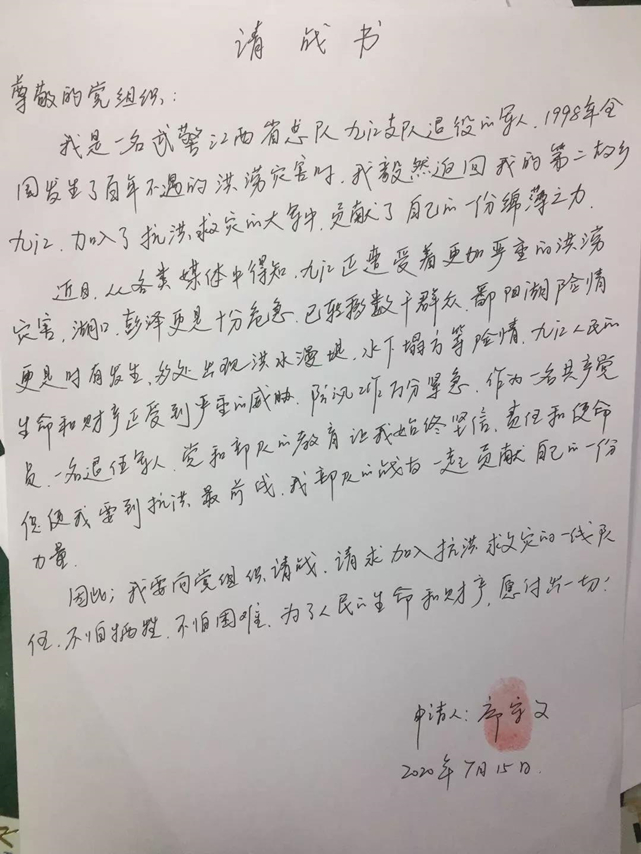 请战书
尊敬的党组织:
我是一名武警江西省总队九江支队退役的军人,1998年全
国发生了百年不遇的洪涝灾害时,我毅然返回我的第二故乡
九江,加入了抗洪救灾的大军中,贡献了自己的一份绵薄之力.
近日,从各类媒体中得知,九江正遭受着更加严重的洪涝
灾害,湖口,彭泽更是十分危急,已转移数千群众,鄱阳湖险情
更是时有发生,多处出现洪水漫堤,水下塌方等险情,九江人民的
生命和财产正受到严重的威胁,防汛工作万分紧急,作为一名共产党
员,一名退伍军人,党和部队的教育让我始终坚信,责任和使命
促使我要到抗洪最前线,我部队的战友一起贡献自己的一份
力量.
因此;我要向党组织请战,请求加入抗洪救灾的一线队
伍,不怕牺牲,不怕困难,为了人民的生命和财产,愿付出一切!
申请人:
2020年7月15日.